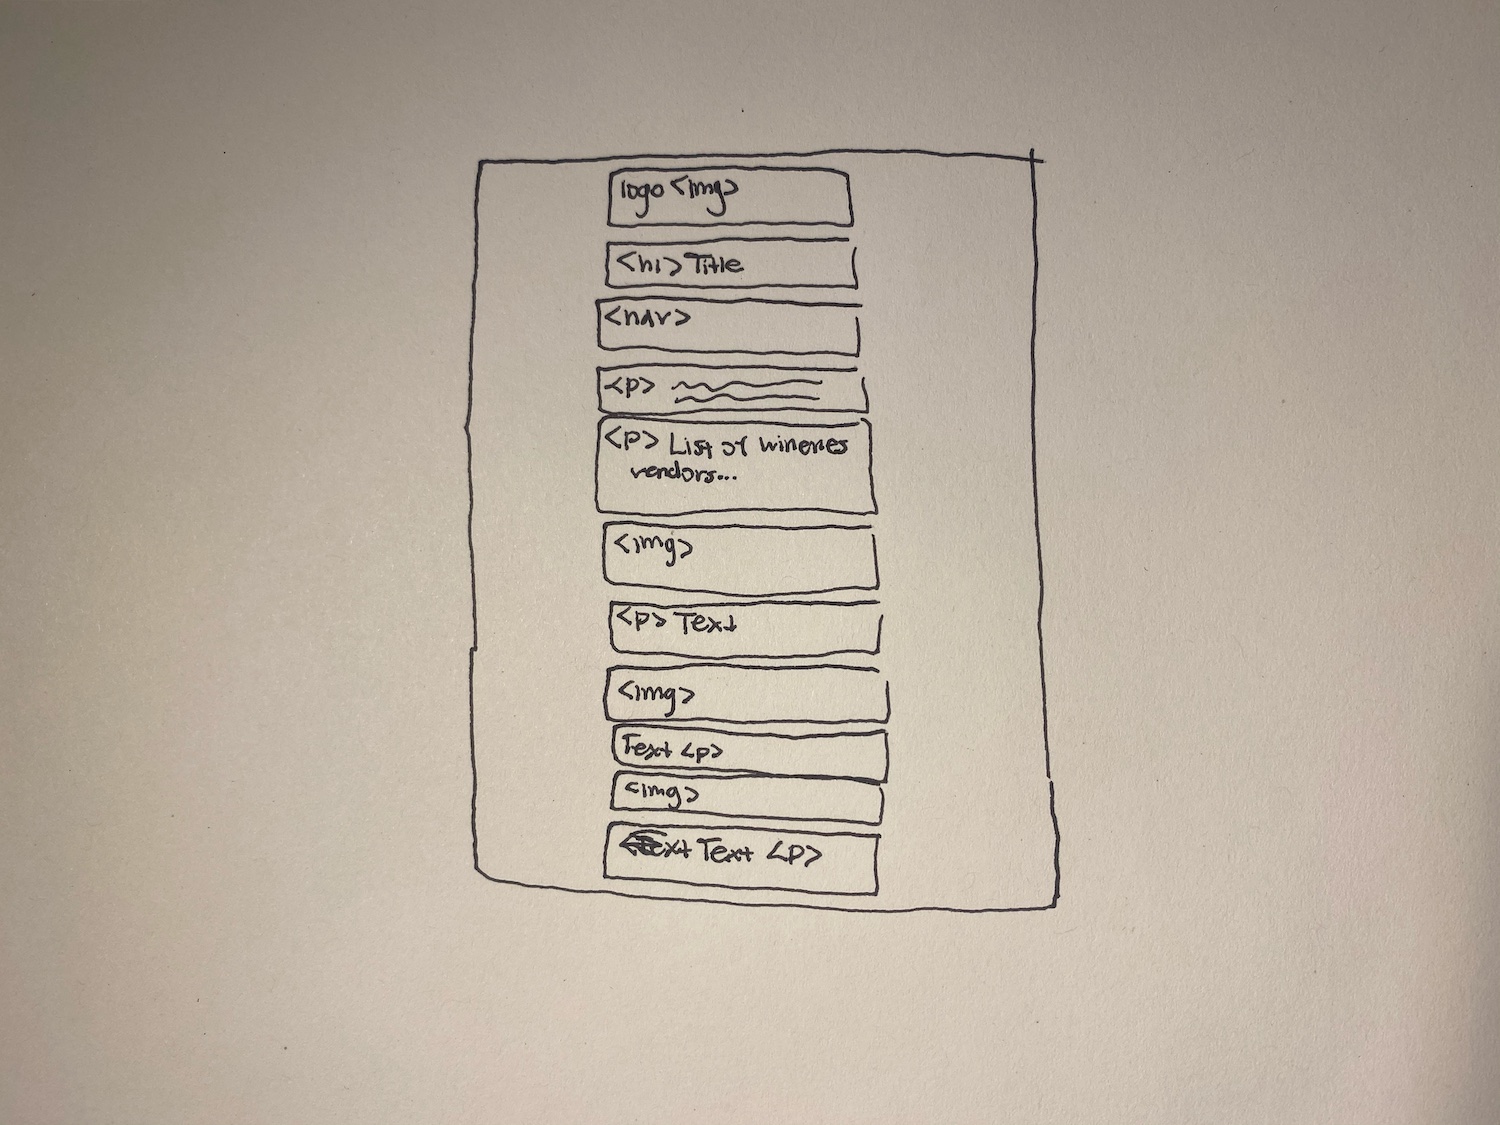 logo <img>
<h1> Title
<nav>
<p>
<p> List of wineries
vendors...
<img>
<p> Text
<img>
Text <p>
<img>
Text <p>